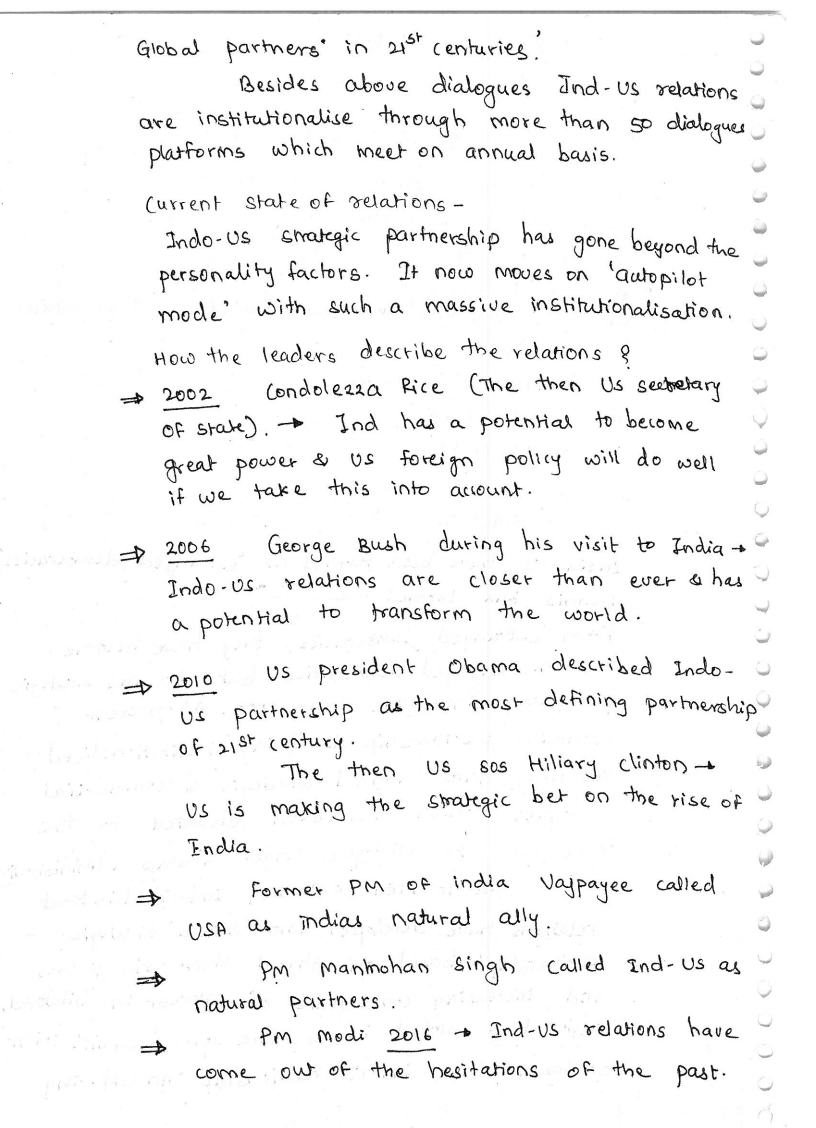 Global partners' in 21st centuries.'
Besides above dialogues Ind-US relations
are institutionalise through more than 50 dialogues
platforms which meet on annual basis.
Current state of relations -
Indo-US strategic partnership has gone beyond the
personality factors. It now moves on 'autopilot
mode' with such a massive institutionalisation.
How the leaders describe the relations ?
⇒ 2002 Condolezza Rice (The then US secretary
of state). → Ind has a potential to become
great power & US foreign policy will do well
if we take this into account.
⇒ 2006 George Bush during his visit to India →
Indo-US relations are closer than ever & has
a potential to transform the world.
⇒ 2010 US president Obama described Indo-
US partnership as the most defining partnership
of 21st century.
The then US SOS Hiliary Clinton →
US is making the strategic bet on the rise of
India.
⇒ Former PM of india Vajpayee called
USA as indias natural ally
⇒ PM Manmohan Singh called Ind-US as
natural partners.
⇒ PM Modi 2016 → Ind-US relations have
come out of the hesitations of the past.